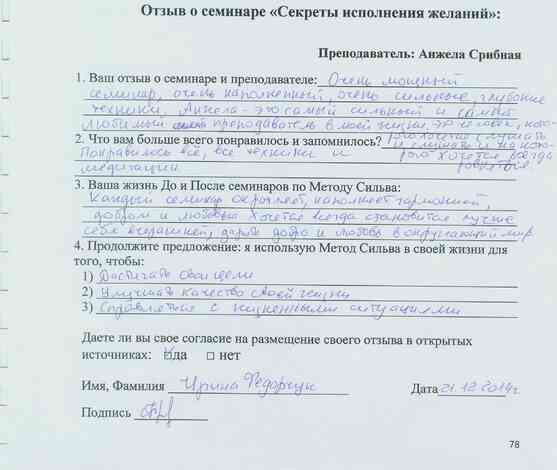 Отзыв о семинаре «Секреты исполнения желаний»:
Преподаватель: Анжела Срибная
1. Ваш отзыв о семинаре и преподавателе: Очень мощный
семинар, очень наполненный, очень сильные, глубокие
техники. Анжела - это самый сильный и самый
любимый преподаватель в моей жизни, это человек, кото-
рого хочется слушать
и слышать и на кото-
рого хочется всегда
равняться
2. Что вам больше всего понравилось и запомнилось?
Понравилось всё, все техники и
медитации
3. Ваша жизнь До и После семинаров по Методу Сильва:
Каждый семинар окрыляет, наполняет гармонией,
добром и любовью. Хочется всегда становиться лучше
себя вчерашней, дарить добро и любовь в окружающий мир
4. Продолжите предложение: я использую Метод Сильва в своей жизни для
того, чтобы:
1) Достигать свои цели
2) Улучшать качество своей жизни
3) Справляться с жизненными ситуациями
Даете ли вы свое согласие на размещение своего отзыва в открытых
источниках: да нет
Имя, Фамилия Ирина Федорчук Дата 21.12.2014г
Подпись
78